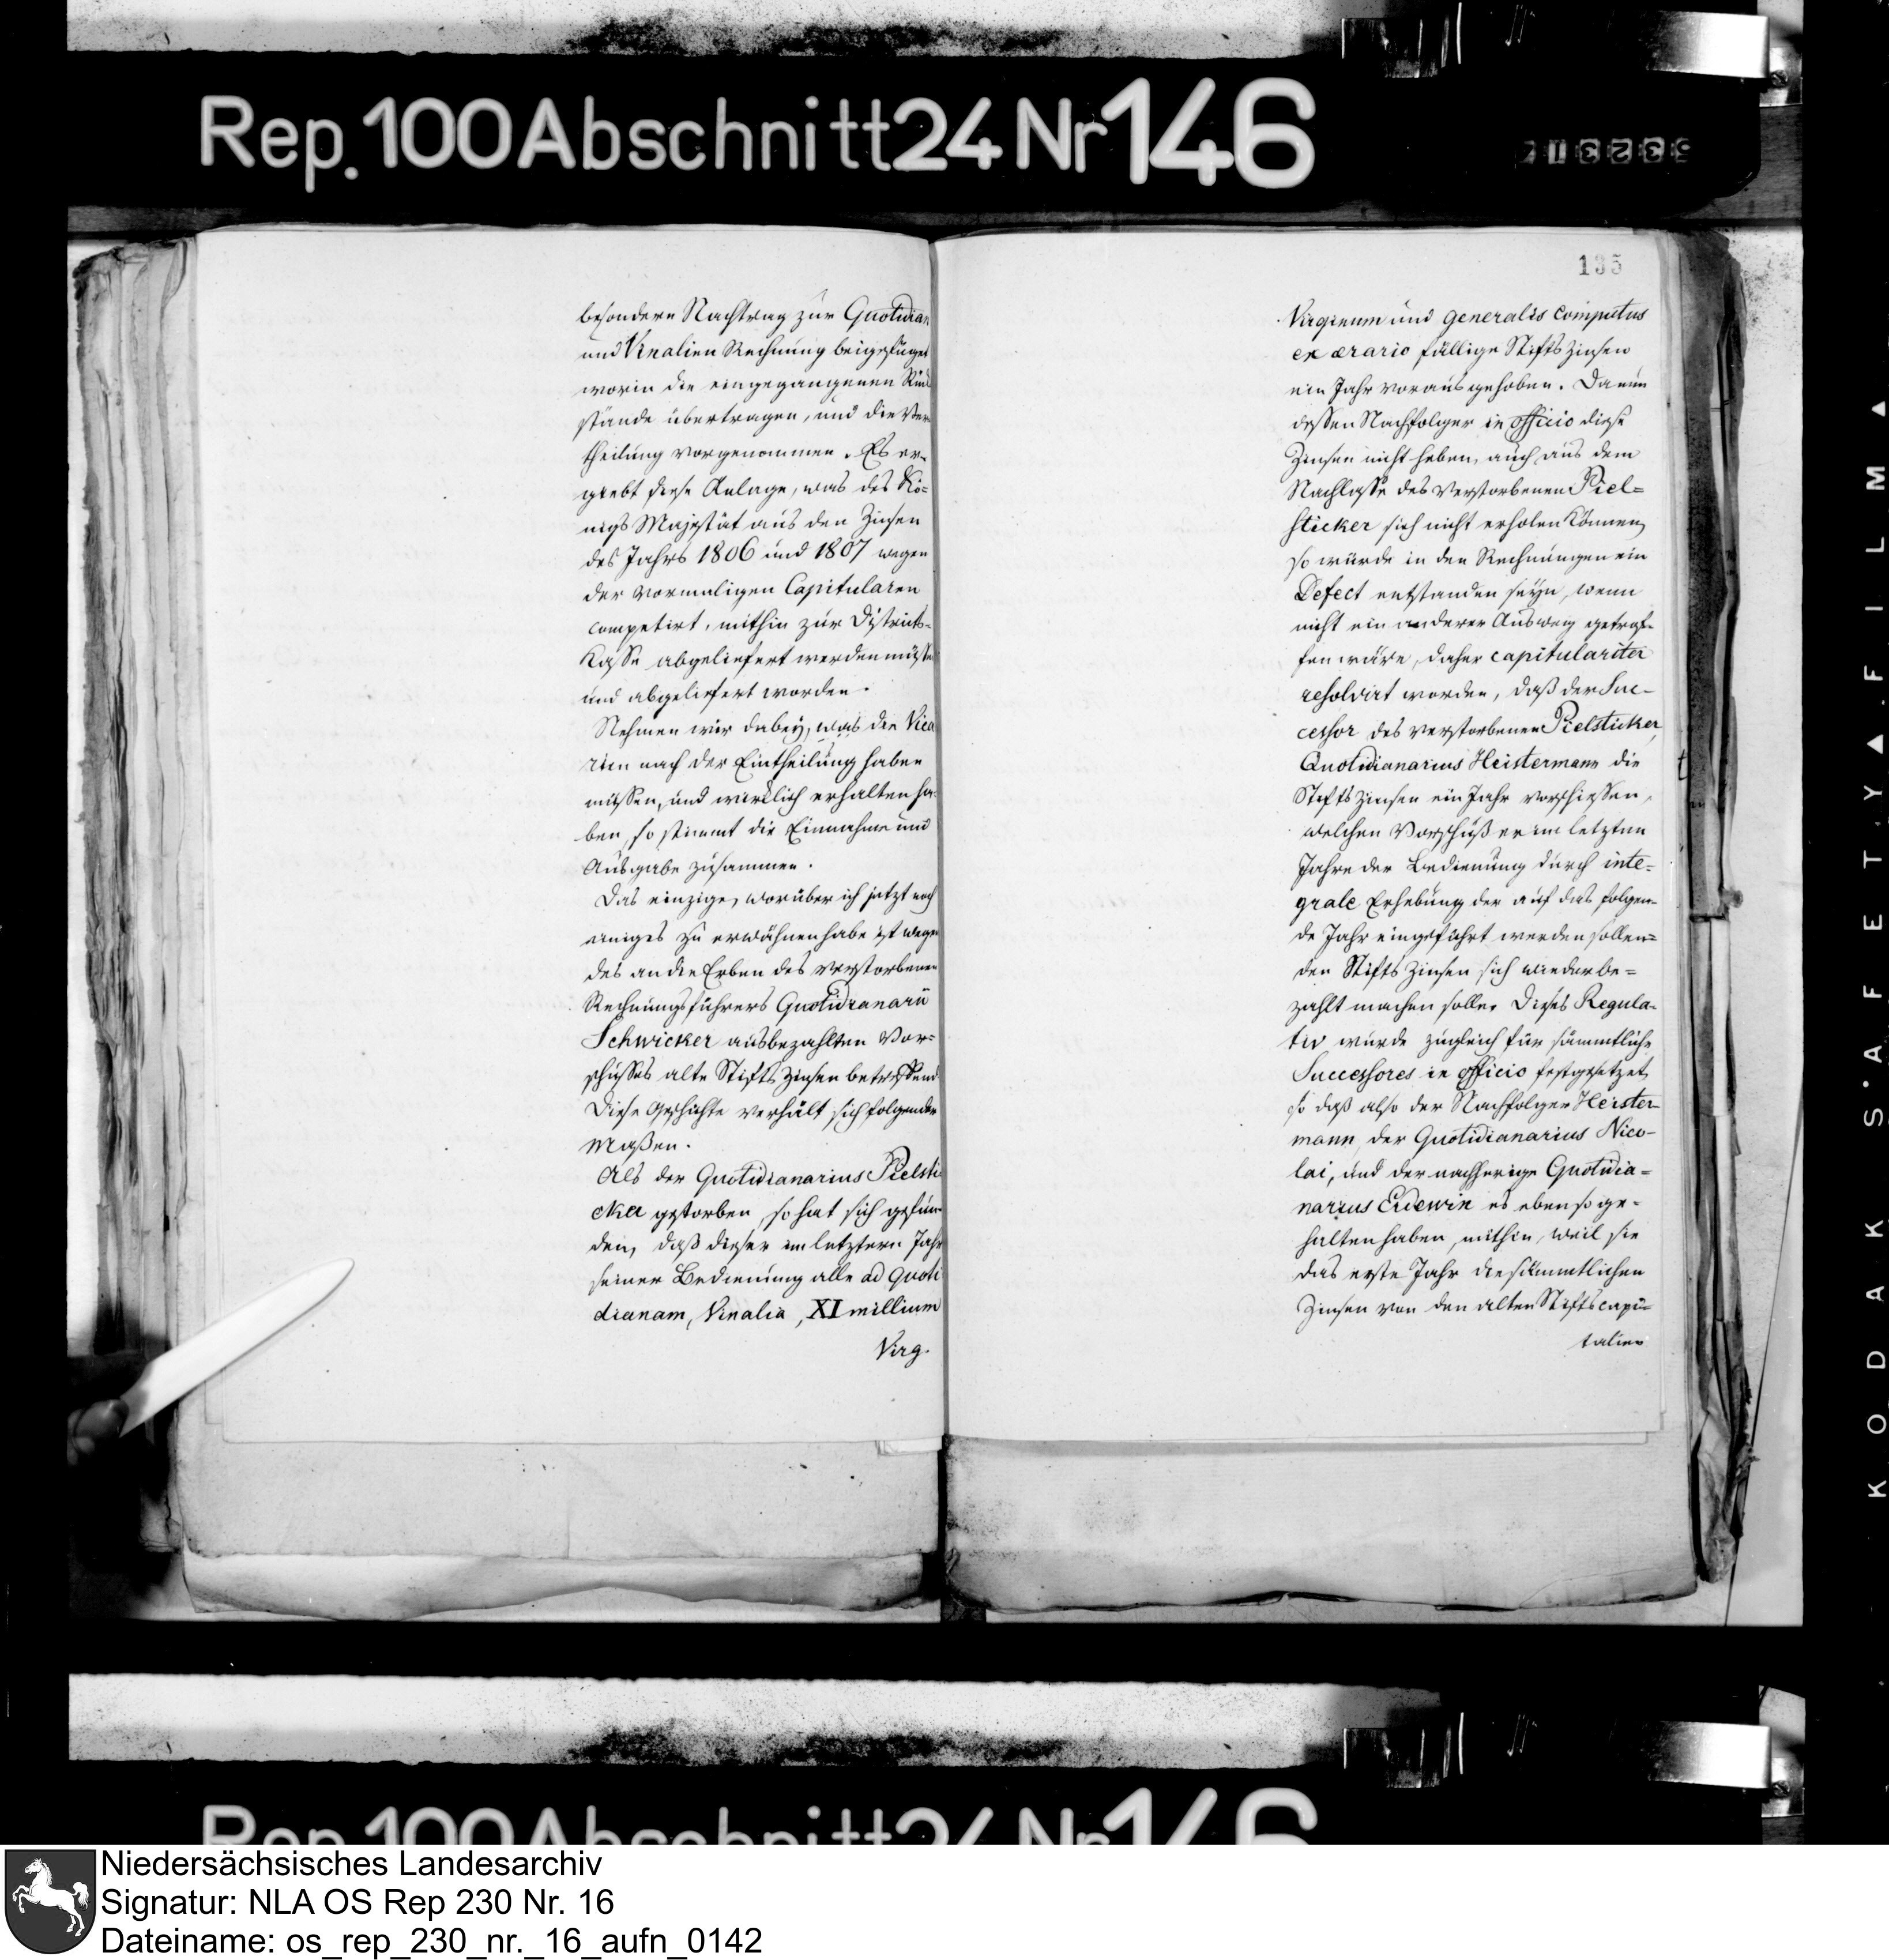 Rep. 100 Abschnitt 24 Nr 146
besondern Nachtrag zur Quotidian
und Vinalien Rechnung beigefüget
worin die eingegangenen Rück
stände übertragen, und die Ver
theilung vorgenommen. Es er-
giebt diese Anlage, was des Kö-
nigs Majestät aus den Zinsen
des Jahrs 1806 und 1807 wegen
der vormaligen Capitularen
competirt, mithin zur Districts-
Kasse abgeliefert werden müsse
und abgeliefert worden.
Nehmen wir dabey, was die Vica
rien nach der Eintheilung haben
müssen, und wirklich erhalten ha-
ben, so stimmt die Einnahme und
Ausgabe zusammen.
Das einzige, worüber ich jetzt noch
einiges zu erwähnen habe ist wegen
des an die Erben des verstorbenen
Rechnungsführers Quotidianarii
Schwicker ausbezahlten Vor-
schusses alte Stifts Zinsen betreffend
Diese Geschichte verhält sich folgender
Maßen.
Als der Quotidianarius Pielsti
cker gestorben, so hat sich gefun-
den, daß dieser im letztern Jahr
seiner Bedienung alle ad Quoti
dianam, Vinalia, XI millium
Virg.
135
Virginum und generalis computus
ex ærario fällige Stifts Zinsen
ein Jahr voraus gehoben. Da nun
dessen Nachfolger in officio diese
Zinsen nicht heben, auch aus dem
Nachlasse des verstorbenen Piel-
sticker sich nicht erholen können,
so würde in den Rechnungen ein
Defect entstanden seyn, wenn
nicht ein anderer Ausweg getrof-
fen wäre, daher capitulariter
resolvirt worden, daß der Suc-
cessor des verstorbenen Pielsticker,
Quotidianarius Heistermann die
Stifts Zinsen ein Jahr vorschiessen,
welchen Vorschuß er im letzten
Jahre der Bedienung durch inte-
grale Erhebung der auf das folgen-
de Jahr eingeführt werden sollen-
den Stifts Zinsen sich wieder be-
zahlt machen solle. Dieses Regula-
tiv wurde zugleich für sämmtliche
Successores in officio festgesetzet
so daß also der Nachfolger Heister-
mann, der Quotidianarius Nico-
lai, und der nachherige Quotidia-
narius es eben so ge-
halten haben, mithin, weil sie
das erste Jahr die sämmtlichen
Zinsen von den alten Stifts capi-
talien
KODAK SAFETY FILM
Rep. 100 Abschnitt 24 Nr 146
Niedersächsisches Landesarchiv
Signatur: NLA OS Rep 230 Nr. 16
Dateiname: os_rep_230_nr._16_aufn_0142